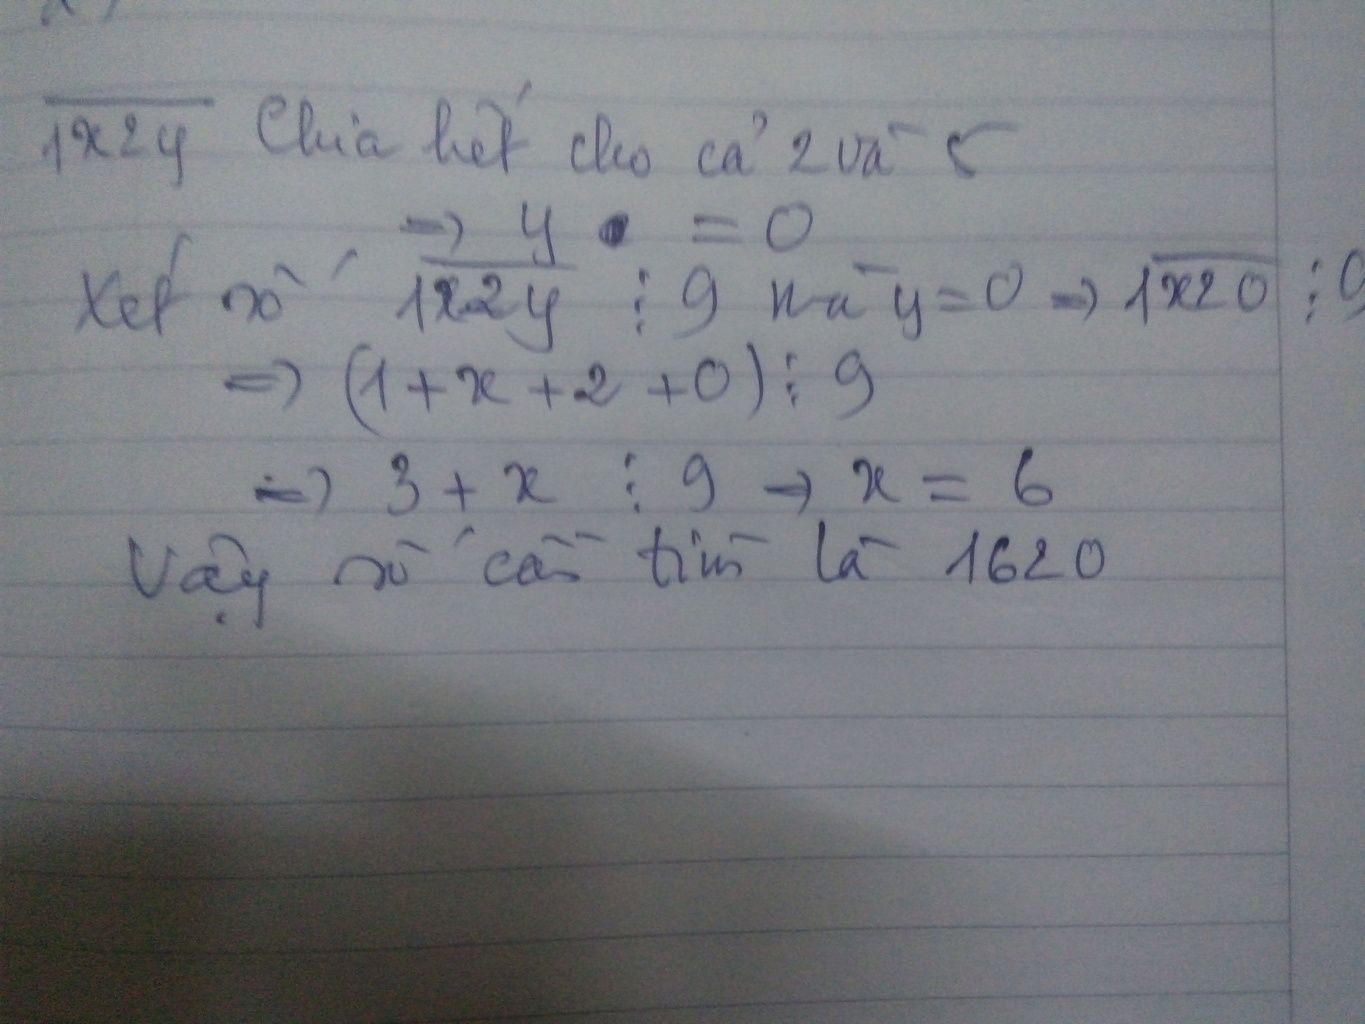 1x2y Chia hết cho cả 2 và 5
=> y = 0
Xét số 1x2y ⋮ 9 mà y = 0 => 1x20 ⋮ 9
=> (1 + x + 2 + 0) ⋮ 9
=> 3 + x ⋮ 9 → x = 6
Vậy số cần tìm là 1620